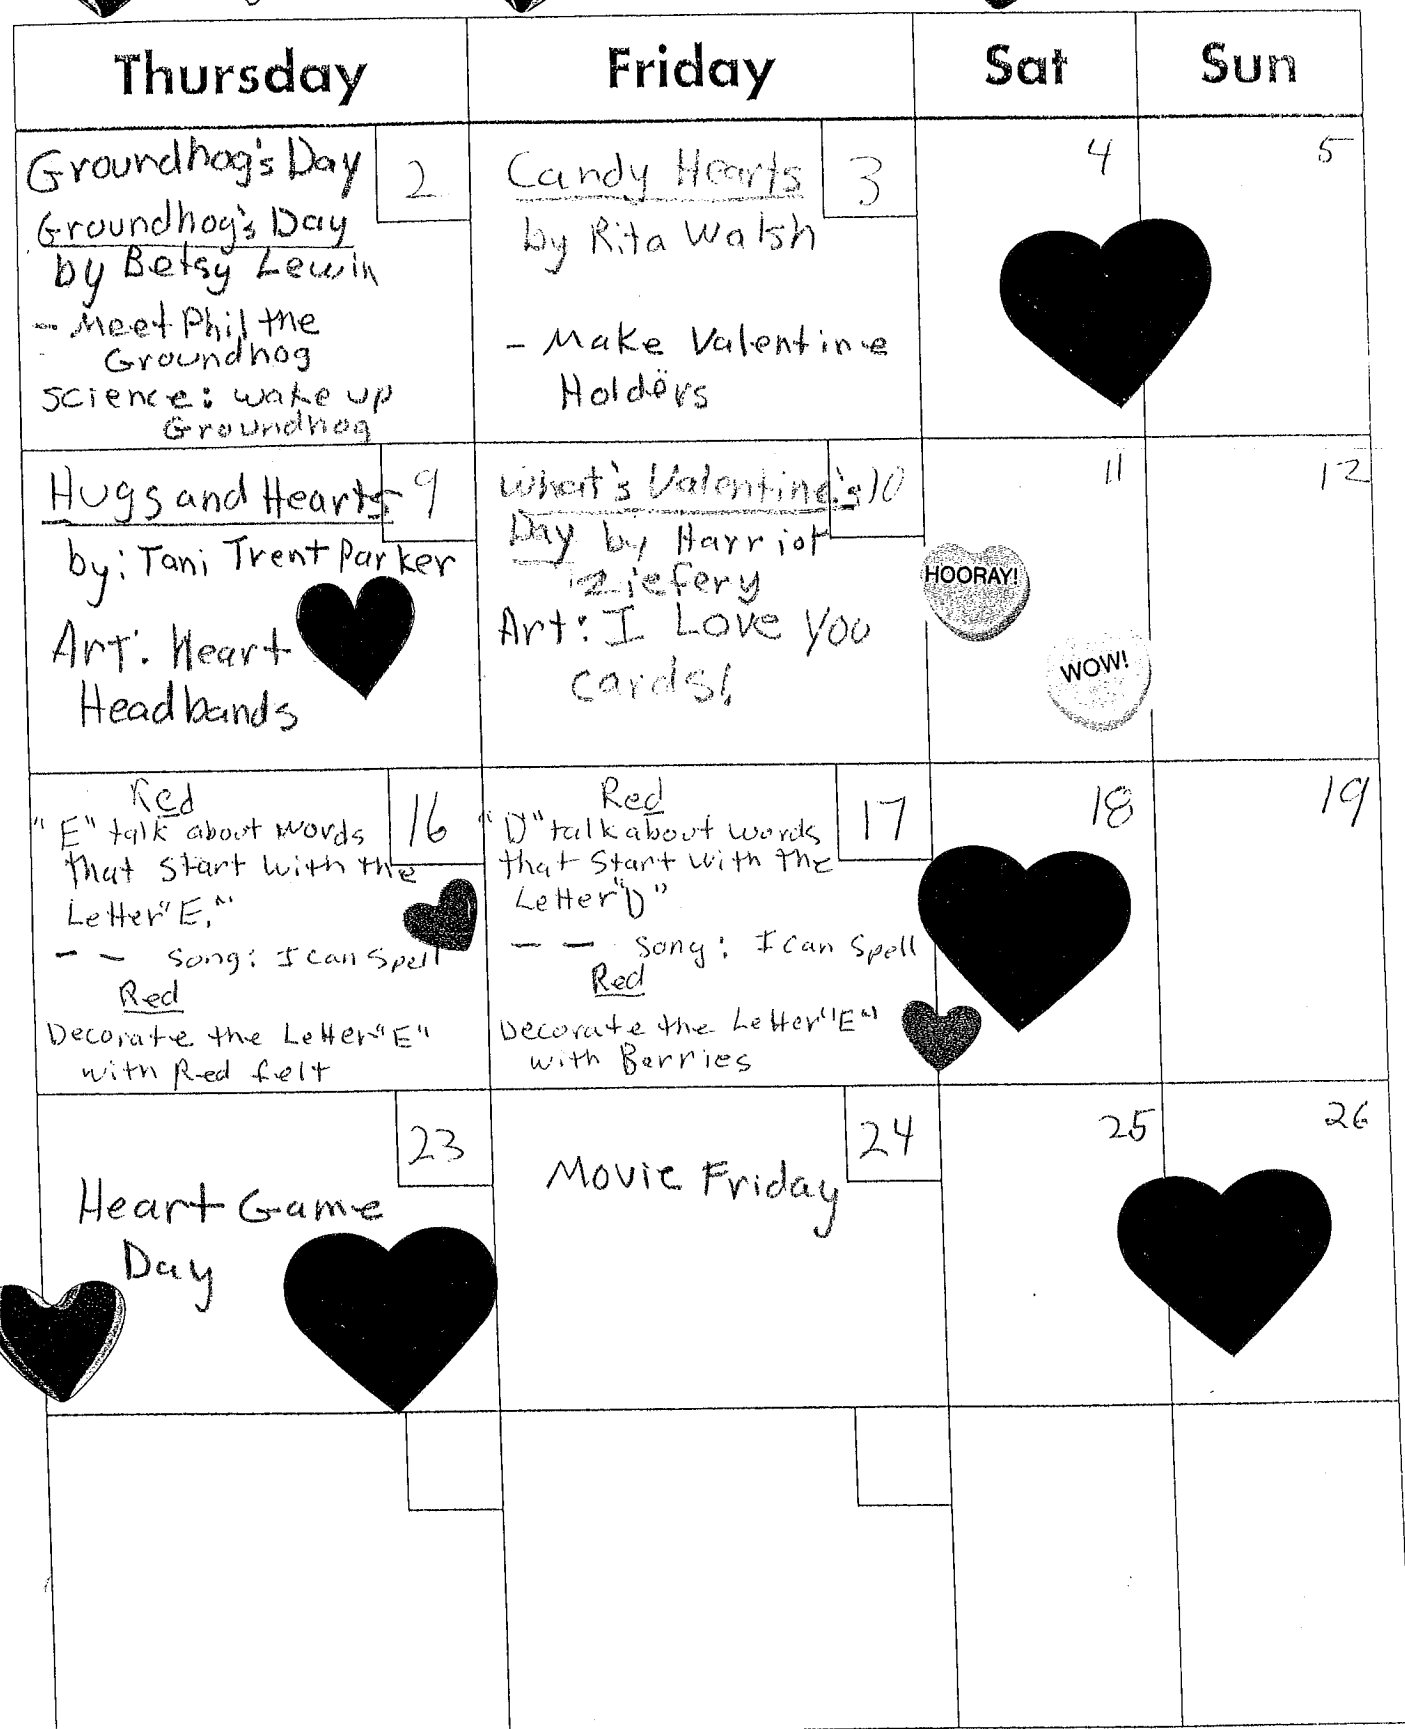 Thursday
Friday
Sat
Sun
Groundhog's Day
2
Groundhog's Day
by Betsy Lewin
- Meet Phil the
Groundhog
Science: wake up
Groundhog
Candy Hearts
3
by Rita Walsh
- Make Valentine
Holders
4
5
Hugs and Hearts
9
by: Toni Trent Parker
Art: Heart
Headbands
What's Valentine's
10
Day by Harriot
Ziefery
Art: I Love You
cards!
11
HOORAY!
WOW!
12
Red
16
"E" talk about words
that Start with the
Letter "E."
- - Song: I can Spell
Red
Decorate the Letter "E"
with Red felt
Red
17
"D" talk about words
that Start with the
Letter "D"
- - Song: I can Spell
Red
Decorate the Letter "E"
with Berries
18
19
23
Heart Game
Day
24
Movie Friday
25
26